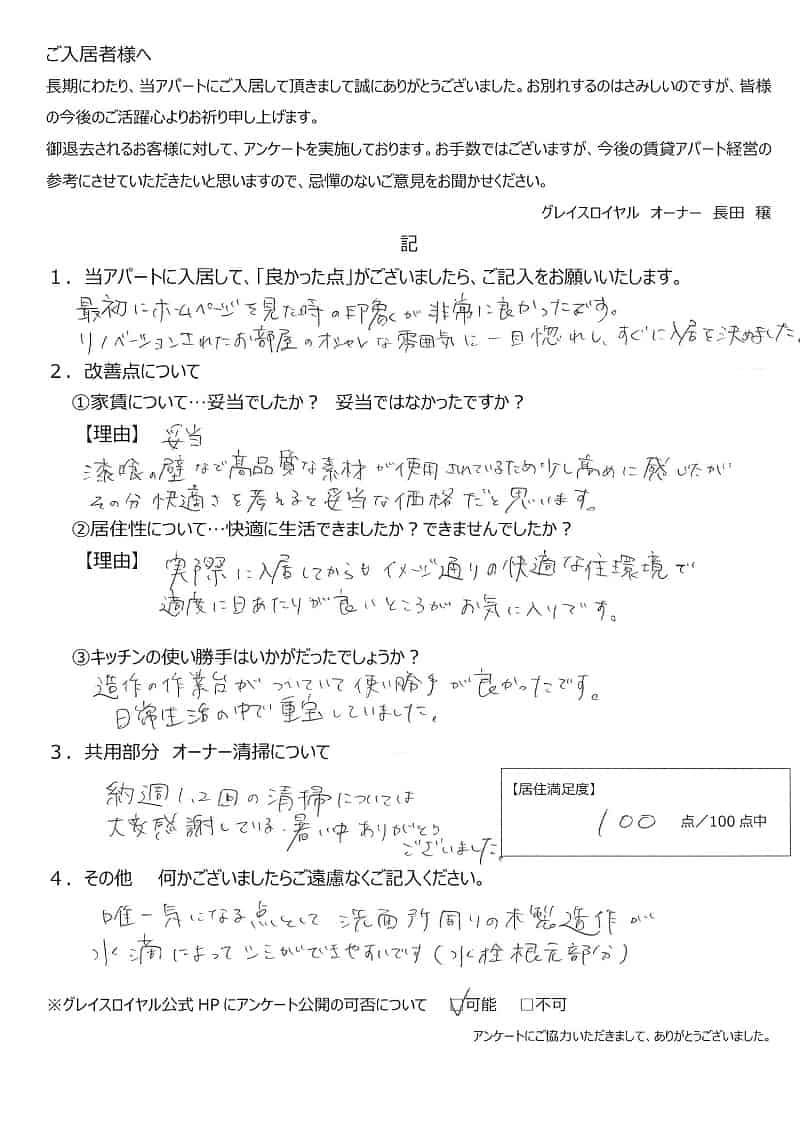 ご入居者様へ
長期にわたり、当アパートにご入居して頂きまして誠にありがとうございました。お別れするのはさみしいのですが、皆様
の今後のご活躍心よりお祈り申し上げます。
御退去されるお客様に対して、アンケートを実施しております。お手数ではございますが、今後の賃貸アパート経営の
参考にさせていただきたいと思いますので、忌憚のないご意見をお聞かせください。
グレイスロイヤル オーナー 長田 穣
記
１．当アパートに入居して、「良かった点」がございましたら、ご記入をお願いいたします。
最初にホームページを見た時の印象が非常に良かったです。
リノベーションされたお部屋のオシャレな雰囲気に一目惚れし、すぐに入居を決めました。
２．改善点について
①家賃について…妥当でしたか？ 妥当ではなかったですか？
【理由】 妥当
漆喰の壁など高品質な素材が使用されているため少し高めに感じたが
その分快適さを考えると妥当な価格だと思います。
②居住性について…快適に生活できましたか？できませんでしたか？
【理由】 実際に入居してからもイメージ通りの快適な住環境で
適度に日あたりが良いところがお気に入りです。
③キッチンの使い勝手はいかがだったでしょうか？
造作の作業台がついていて使い勝手が良かったです。
日常生活の中で重宝していました。
３．共用部分 オーナー清掃について
約週1,2回の清掃については
大変感謝している。暑い中ありがとう
ございました。
【居住満足度】
100 点／100 点中
４．その他 何かございましたらご遠慮なくご記入ください。
唯一気になる点として洗面所周りの木製造作が
水滴によってシミができやすいです（水栓根元部分）
※グレイスロイヤル公式 HP にアンケート公開の可否について ☑可能 □不可
アンケートにご協力いただきまして、ありがとうございました。